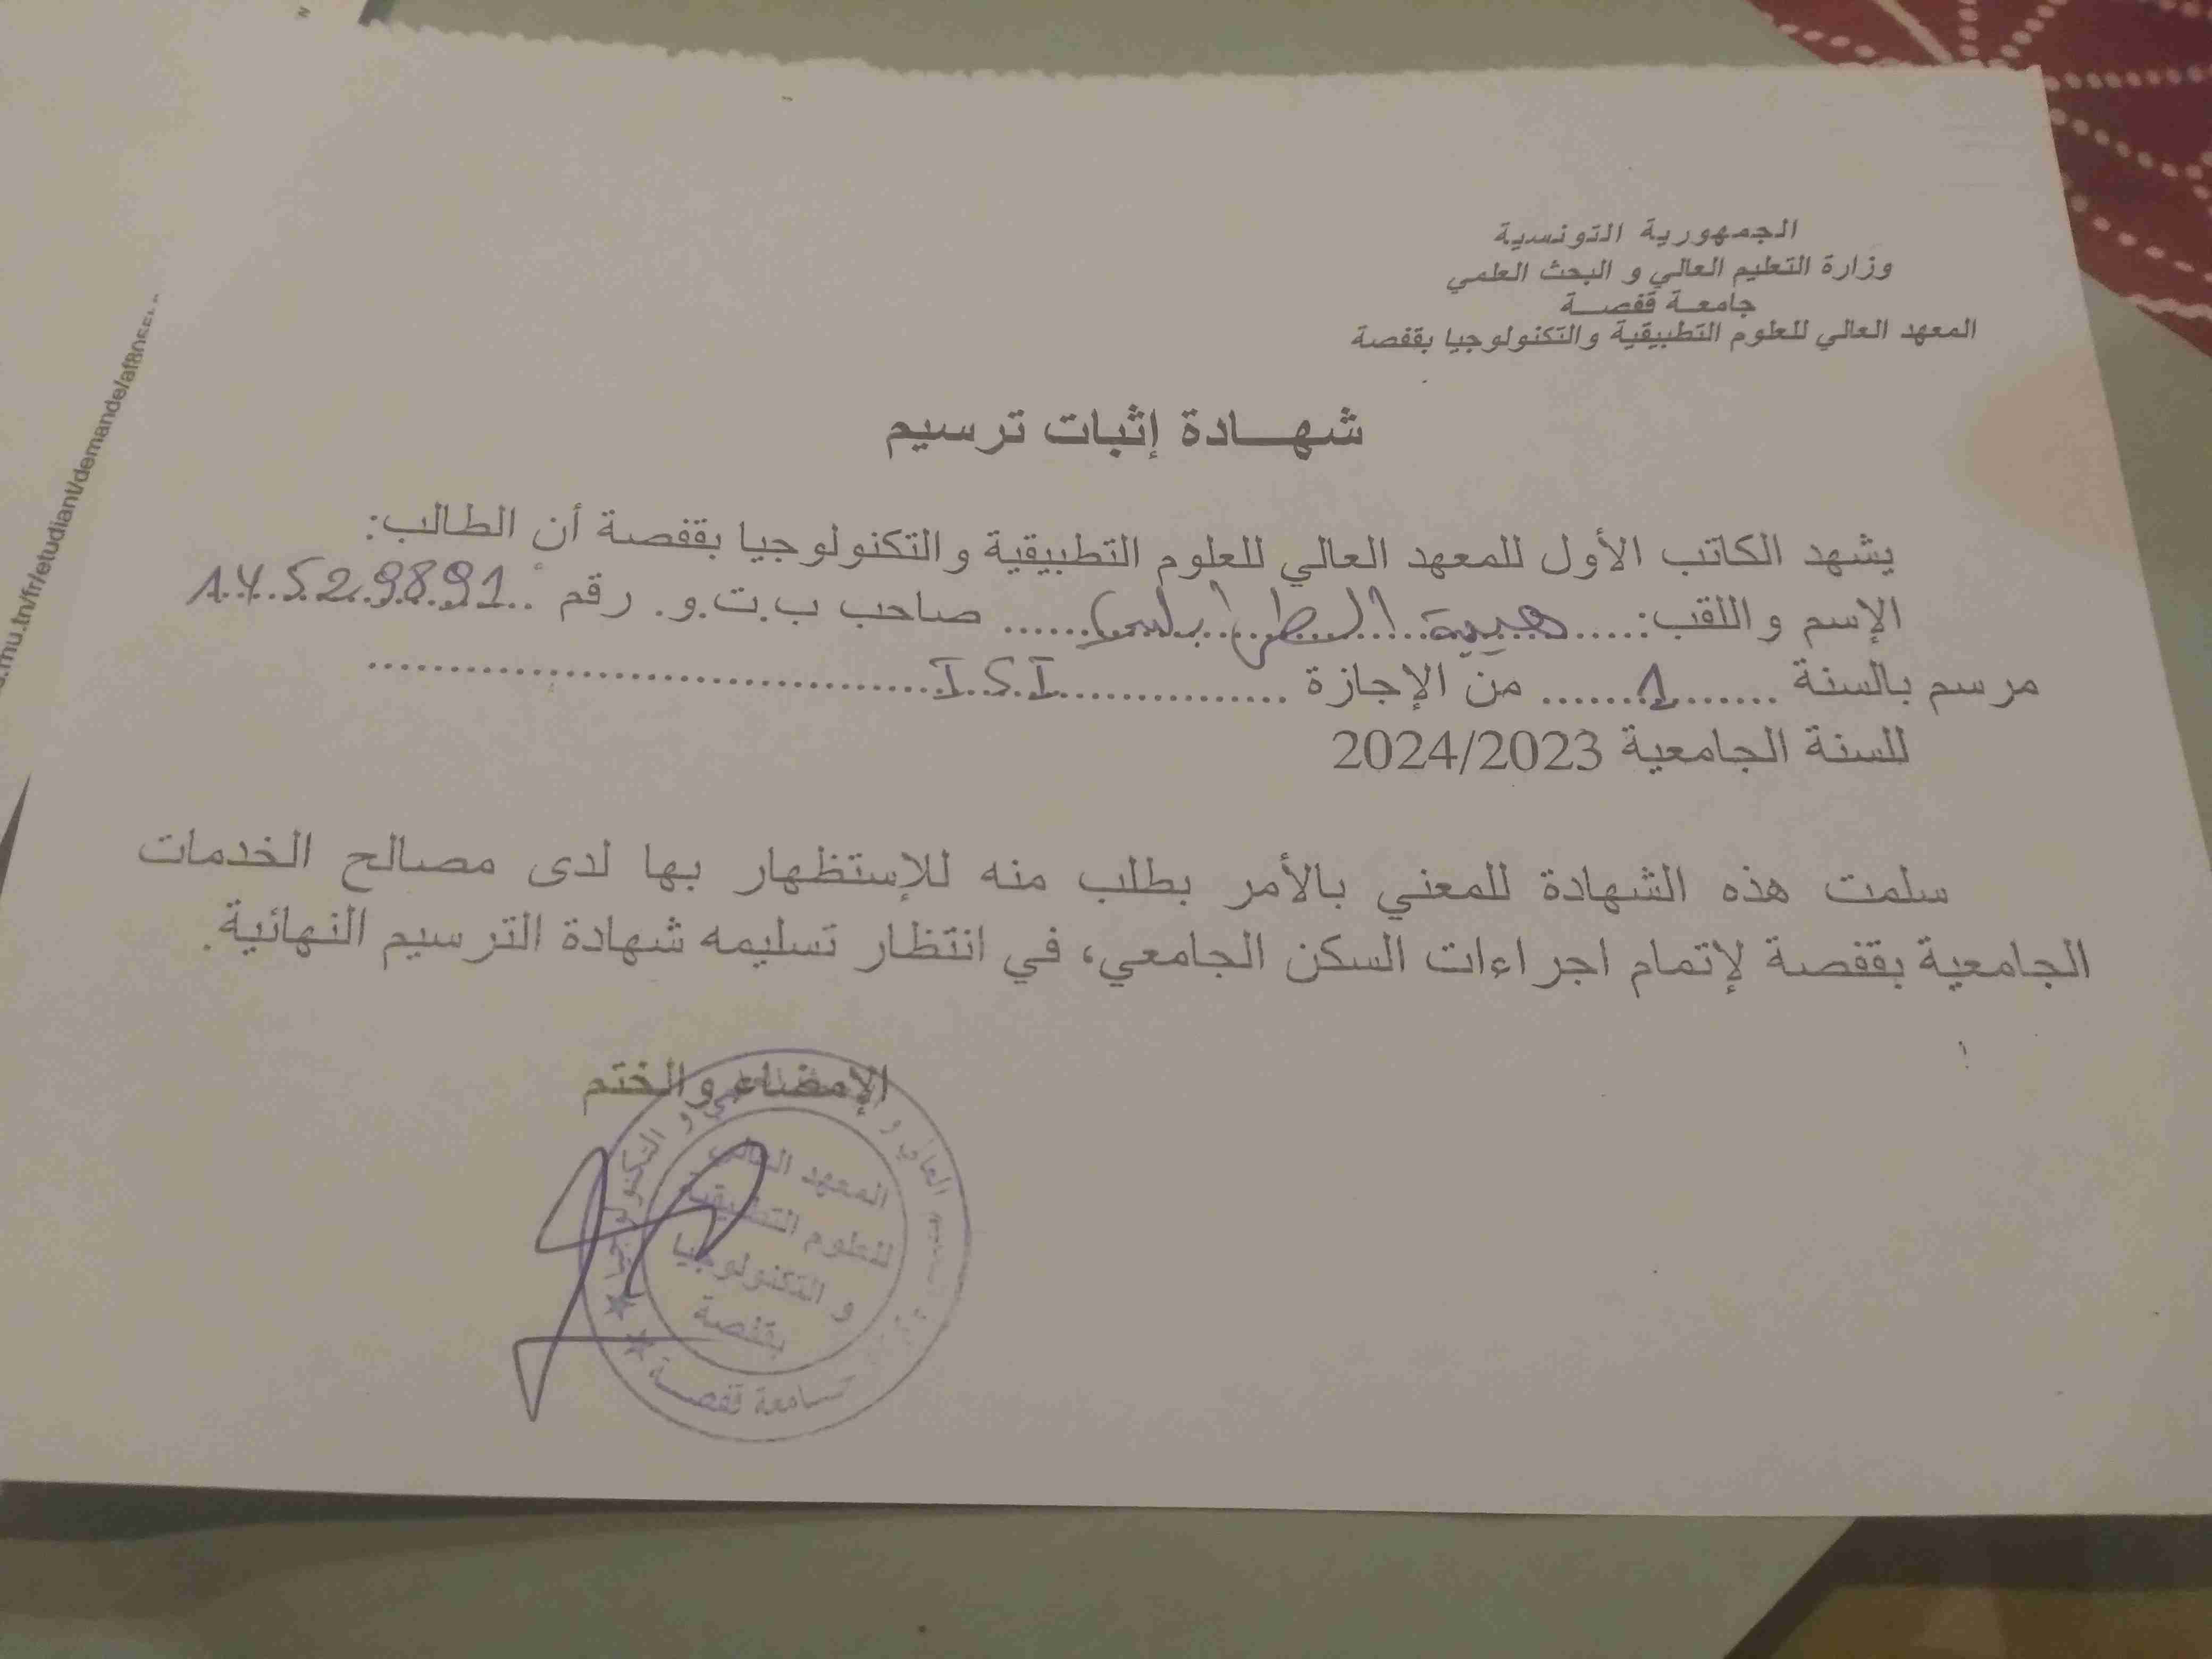 الجمهورية التونسية
وزارة التعليم العالي و البحث العلمي
جامعة قفصة
المعهد العالي للعلوم التطبيقية والتكنولوجيا بقفصة
شهادة إثبات ترسيم
يشهد الكاتب الأول للمعهد العالي للعلوم التطبيقية والتكنولوجيا بقفصة أن الطالب:
الإسم واللقب:.....هيبة الطرابلسي...... صاحب ب.ت.و. رقم
مرسم بالسنة .......1....... من الإجازة ...............I.S.I...............
للسنة الجامعية 2024/2023
سلمت هذه الشهادة للمعني بالأمر بطلب منه للإستظهار بها لدى مصالح الخدمات
الجامعية بقفصة لإتمام اجراءات السكن الجامعي، في انتظار تسليمه شهادة الترسيم النهائية.
الإمضاء والختم
المعهد العالي
للعلوم التطبيقية
و التكنولوجيا
بقفصة
جامعة قفصة
mu.tn/fr/etudiant/demande/